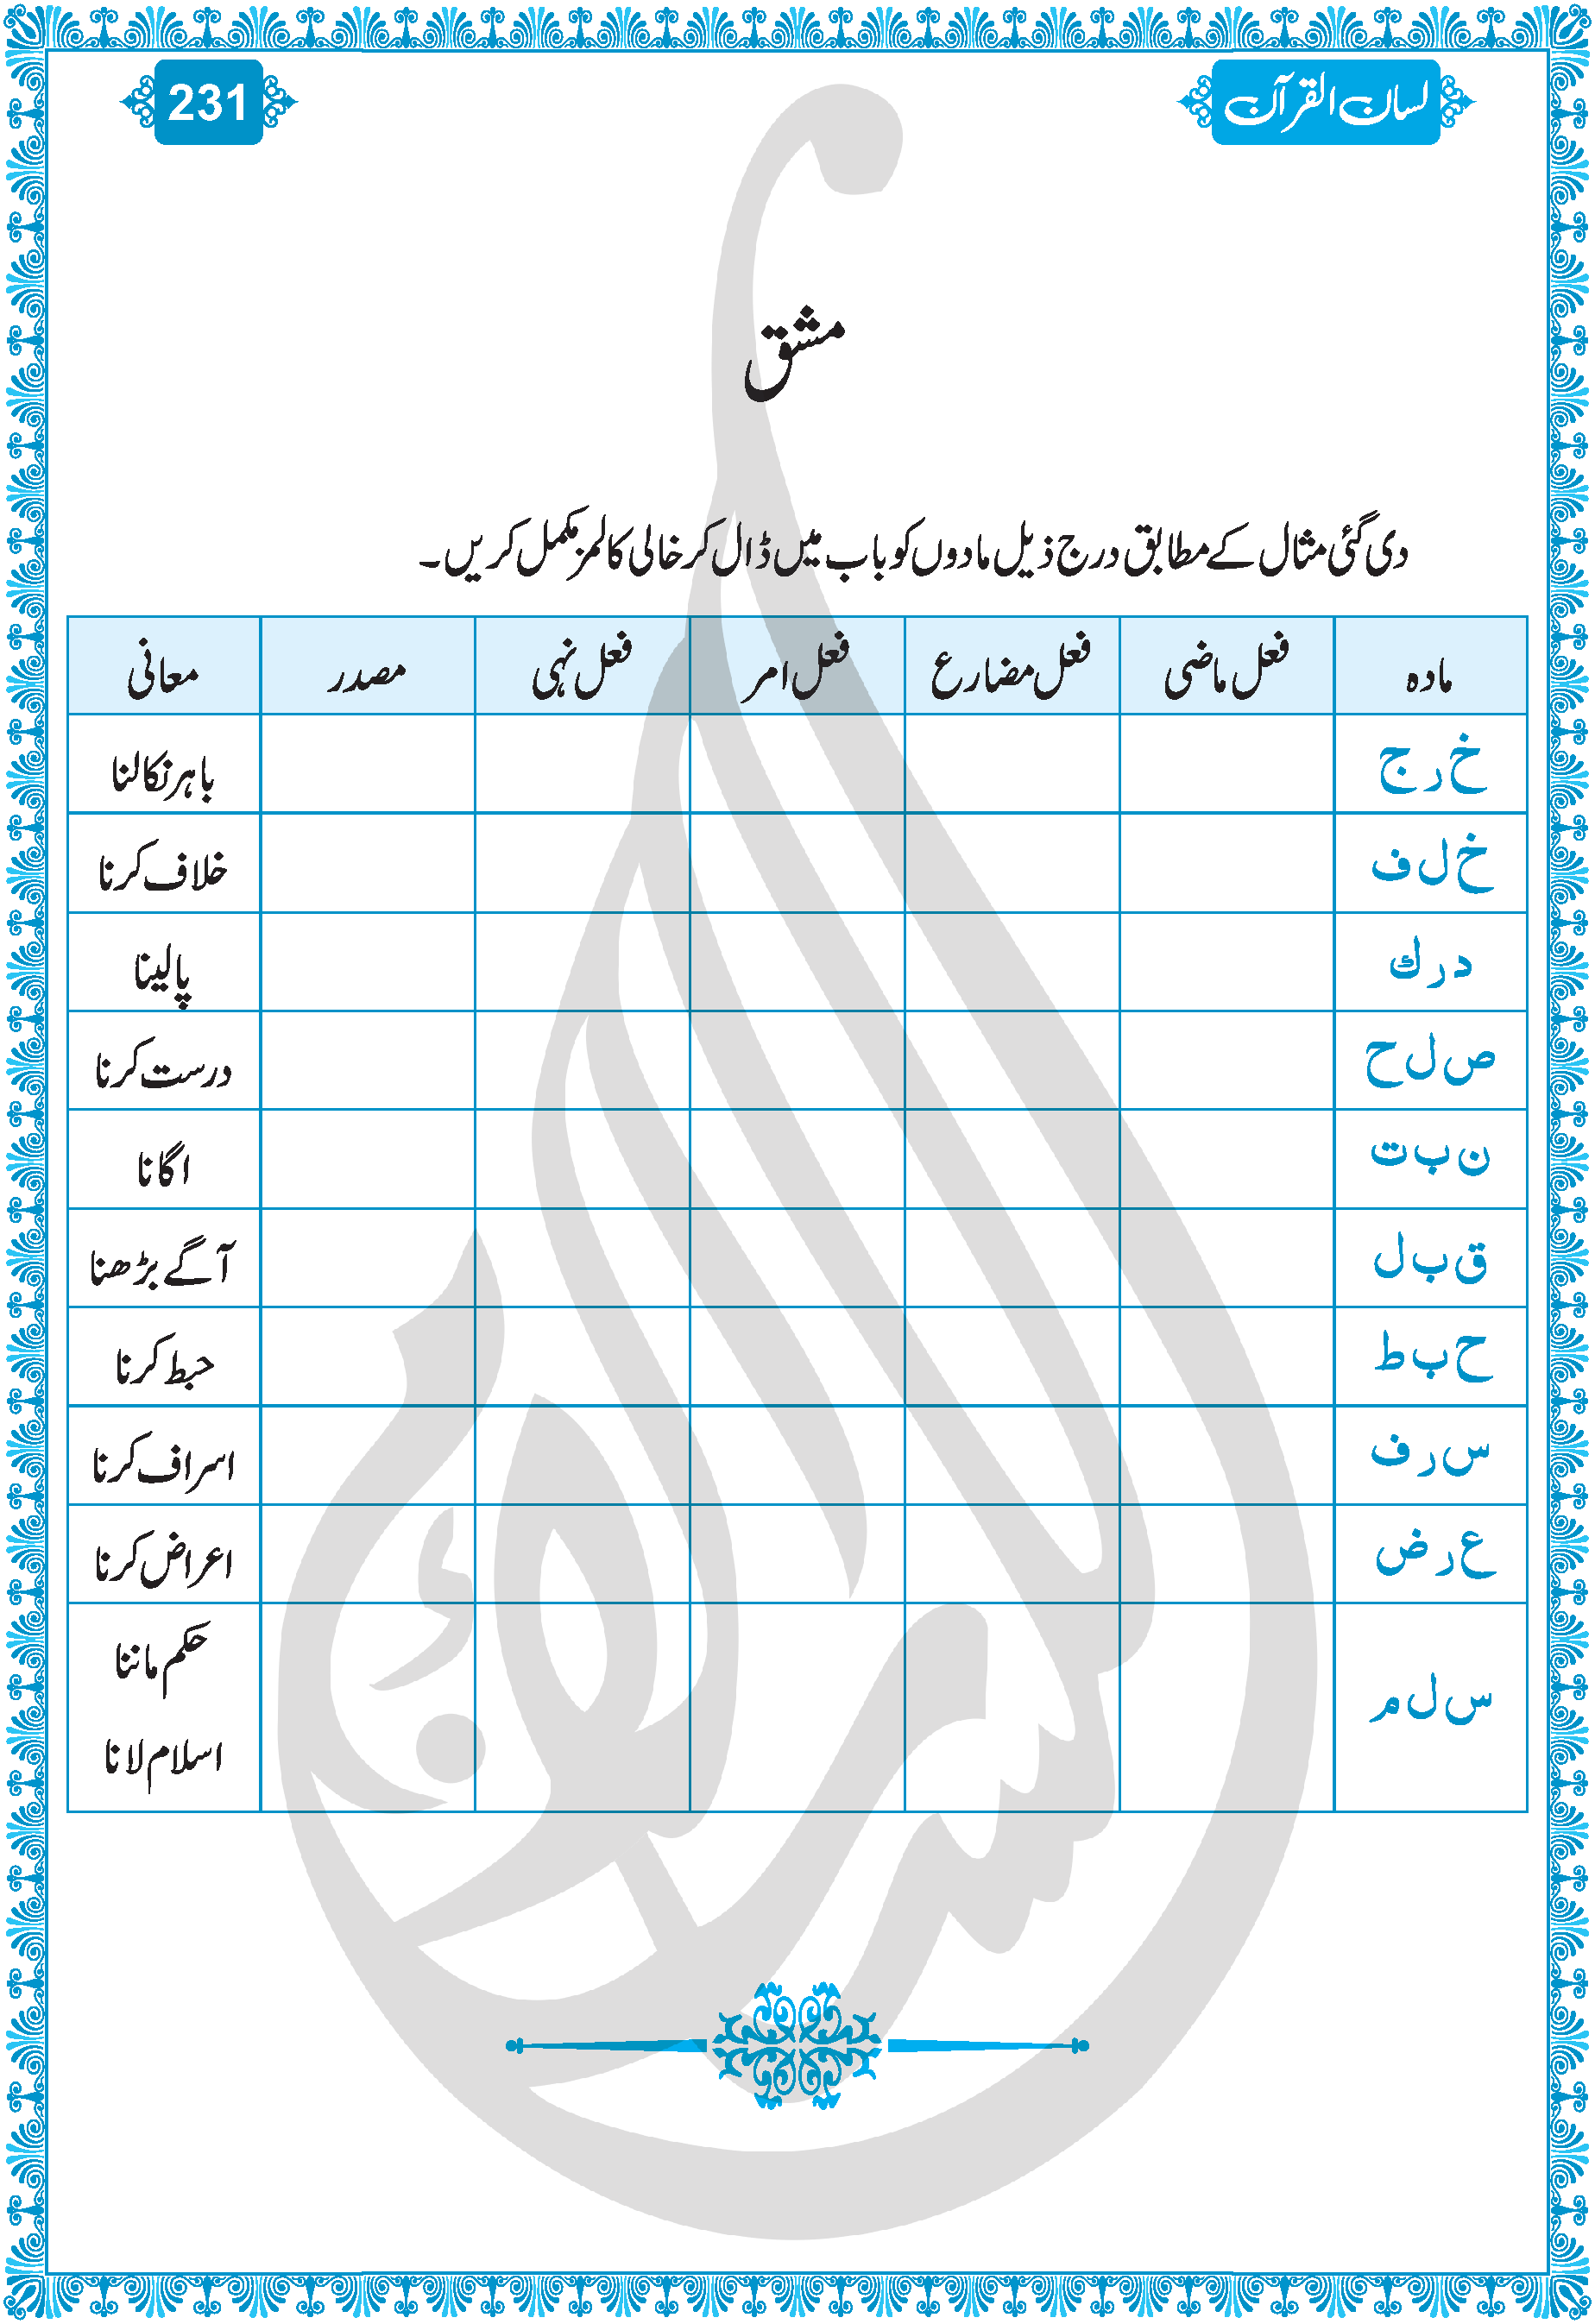 لسان القرآن
231
مشق
دی گئی مثال کے مطابق درج ذیل مادوں کو باب میں ڈال کر خالی کالمز مکمل کریں۔
مادہ فعل ماضی فعل مضارع فعل امر فعل نہی مصدر معانی
خ ر ج باہر نکالنا
خ ل ف خلاف کرنا
د ر ك پالینا
ص ل ح درست کرنا
ن ب ت اگانا
ق ب ل آگے بڑھنا
ح ب ط حبط کرنا
س ر ف اسراف کرنا
ع ر ض اعراض کرنا
س ل م حکم ماننا
اسلام لانا